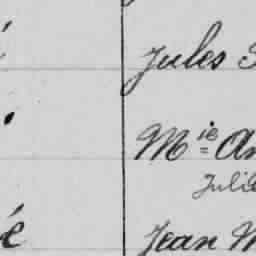 Jules
Mie An
Julie
Jean M